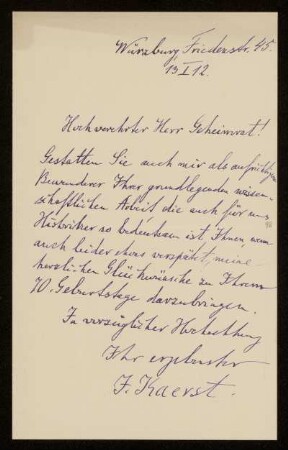 Würzburg Friedenstr. 45.
13 I 12.
Hochverehrter Herr Geheimrat!
Gestatten Sie auch mir als aufrichtigem
Bewunderer Ihrer grundlegenden wissen-
schaftlichen Arbeit die auch für uns
Historiker so bedeutsam ist Ihnen, wenn
auch leider etwas verspätet, meine
herzlichen Glückwünsche zu Ihrem
70. Geburtstage darzubringen.
In vorzüglicher Hochachtung
Ihr ergebenster
J. Kaerst.